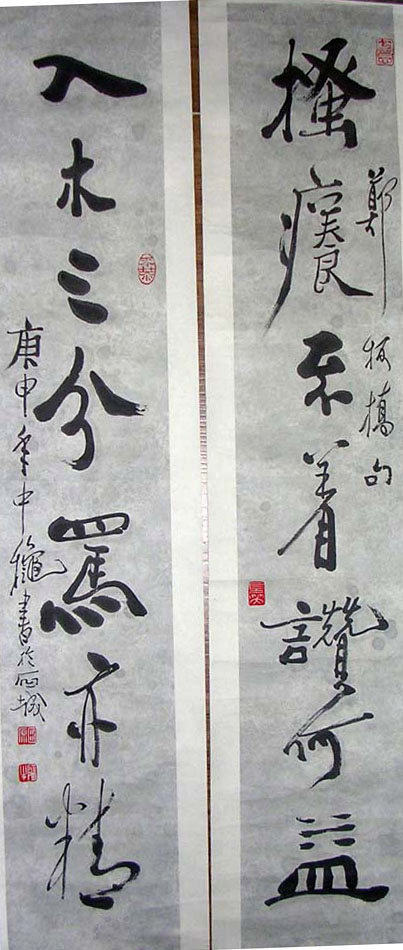 搔癢不着讚何益
鄭板橋句
入木三分罵亦精
庚申年中龝書於城